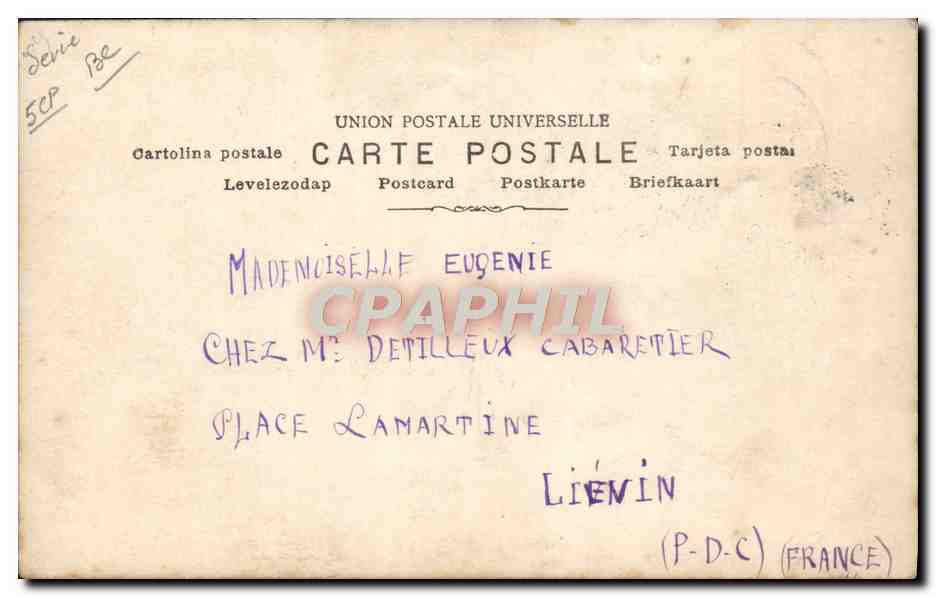 Série
5CP BE
UNION POSTALE UNIVERSELLE
Cartolina postale CARTE POSTALE Tarjeta postal
Levelezodap Postcard Postkarte Briefkaart
MADEMOISELLE EUGENIE
CPAPHIL
CHEZ Mr DETILLEUX CABARETIER
PLACE LAMARTINE
LIÉVIN
(P-D-C) (FRANCE)